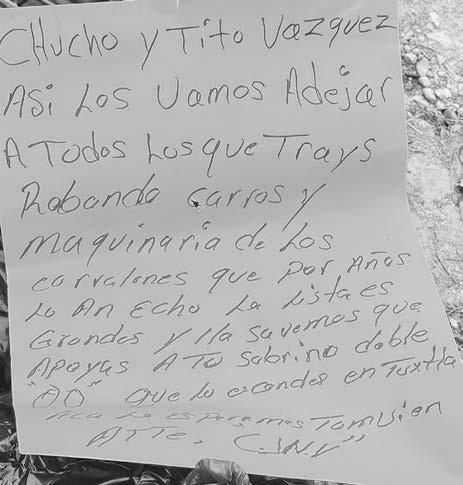 CHucho y Tito Vazquez
Asi Los Vamos Adejar
A Todos Losque Trays
Robando carros y
maquinaria de Los
corralones que por Años
Lo An Echo La Lista es
Grandes y lla savemos que
Apoyas A Tu Sobrino doble
"OO" que lo escondes en Tuxtla
Aca Lo Esperamos Tomvien
ATTe. "CJNG"